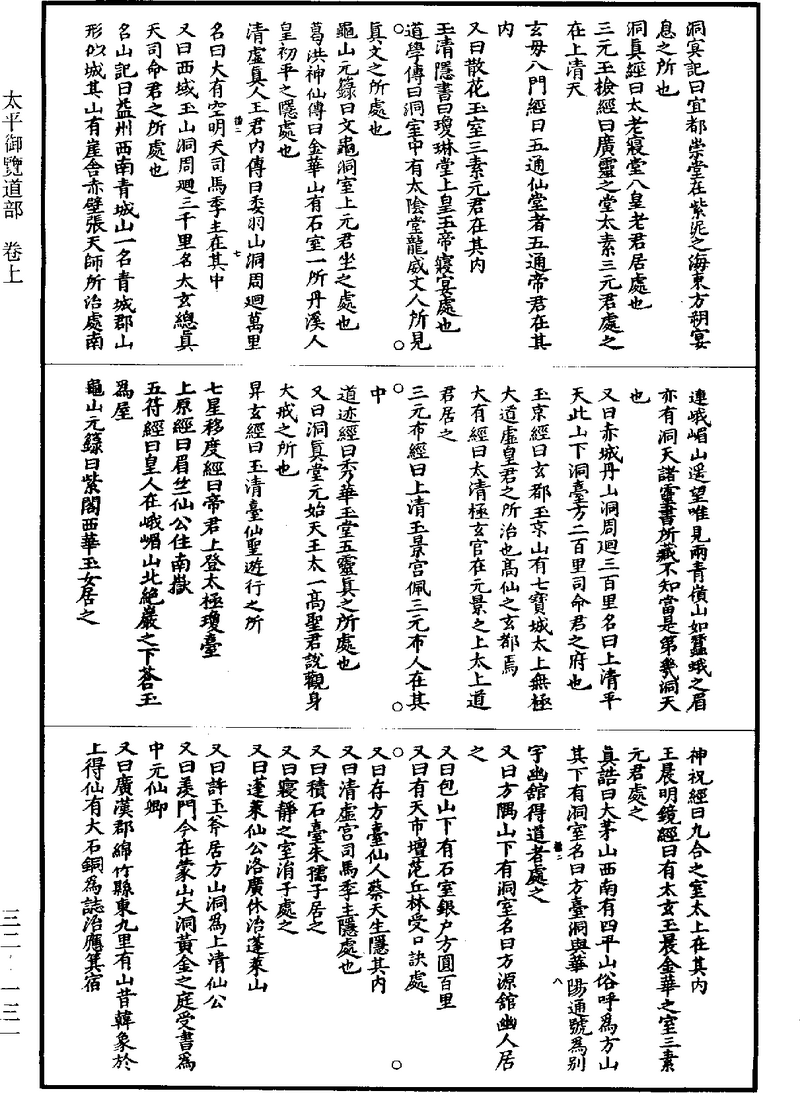 洞冥記曰宜都崇堂在紫泥之海東方朔宴
息之所也
洞真經曰太老寢堂八皇老君居處也
三元玉檢經曰廣靈之堂太素三元君處之
在上清天
玄毋八門經曰五通仙堂者五通帝君在其
內
又曰散花玉室三素元君在其內
玉清隱書曰瓊琳堂上皇玉帝寢宴處也
道學傳曰洞室中有太陰堂龍威丈人所見
真文之所處也
龜山元籙曰文龜洞室上元君坐之處也
葛洪神仙傳曰金華山有石室一所丹溪人
皇初平之隱處也
清虛真人王君內傳曰委羽山洞周迴萬里
名曰大有空明天司馬季主在其中
又曰西城玉山洞周迴三千里名太玄總真
天司命君之所處也
名山記曰益州西南青城山一名青城郡山
形似城其山有崖舍赤壁張天師所治處南
連峨嵋山遥望唯見兩青嶺山如蠶蛾之眉
亦有洞天諸靈書所藏不知當是第幾洞天
也
又曰赤城丹山洞周迴三百里名曰上清平
天此山下洞臺方二百里司命君之府也
玉京經曰玄都玉京山有七寶城太上無極
大道虛皇君之所治也高仙之玄都焉
大有經曰太清極玄官在元景之上太上道
君居之
三元布經曰上清玉景宫佩三元布人在其
中
道迹經曰秀華玉堂五靈真之所處也
又曰洞真堂元始天王太一高聖君說觀身
大戒之所也
昇玄經曰玉清臺仙聖遊行之所
七星移度經曰帝君上登太極瓊臺
上原經曰眉竺仙公住南嶽
五符經曰皇人在峨嵋山北絶巖之下蒼玉
為屋
龜山元籙曰紫閣西華玉女居之
神祝經曰九合之室太上在其內
玉晨明鏡經曰有太玄玉晨金華之室三素
元君處之
真誥曰大茅山西南有四平山俗呼為方山
其下有洞室名曰方臺洞與華陽通號為別
宇幽舘得道者處之
又曰方隅山下有洞室名曰方源舘幽人居
之
又曰包山下有石室銀户方圓百里
又曰有天市壇范丘林受口訣處
又曰存方臺仙人蔡天生隱其內
又曰清虛宫司馬季主隱處也
又曰積石臺朱孺子居之
又曰寢靜之室涓子處之
又曰蓬萊仙公洛廣休治蓬萊山
又曰許玉斧居方山洞為上清仙公
又曰羨門今在蒙山大洞黄金之庭受書為
中元仙卿
又曰廣漢郡綿竹縣東九里有山昔韓象於
上得仙有大石銅為誌治應箕宿
太平御覽道部 卷上
三二 - 一三一
七
八